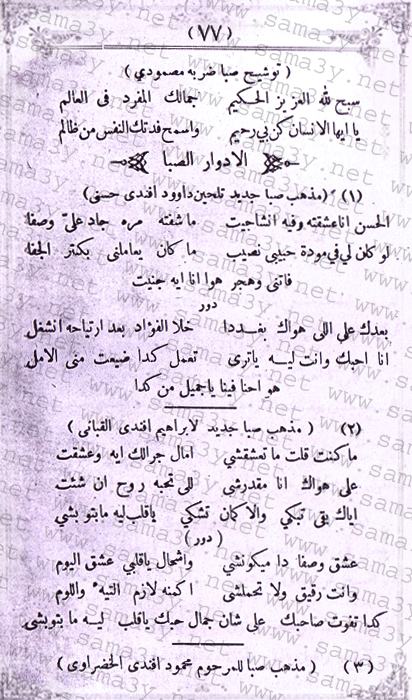 (٧٧)
(توشيح صبا ضربه مصمودي)
سبح لله العزيز الحكيم جمالك المفرد فى العالم
يا ايها الانسان كن بي رحيم واسمح فدتك النفس من ظالم
الادوار الصبا
(١) (مذهب صبا جديد تلحين داوود افندى حسنى)
الحسن انا عشقته وفيه انشاجيت ما شفته مره جاد علىّ وصفا
لو كان لي في مودة حبيبى نصيب ما كان يعاملنى بكتر الجفا
فاتنى وهجر هوا انا ايه جنيت
دور
بعدك على اللى هواك بفددا خلا الفؤاد بعد ارتياحه انشغل
انا احبك وانت ليه ياترى تعمل كدا ضيعت منى الامل
هو احنا فينا ياجميل من كدا
(٢) (مذهب صبا جديد لابراهيم افندى القبانى)
ما كنت قلت ما تعشقشي امال جرالك ايه وعشقت
على هواك انا مقدرشى للى تحبه روح ان شئت
اياك بقى تبكي والا كمان تشكي ياقلب ليه مابتوبشي
(دور)
عشق وصفا دا ميكونشي واشحال ياقلبي عشق اليوم
وانت رقيق ولا تحملشى اكمنه لازم التيه واللوم
كدا تفوت صاحبك على شان جمال حبك ياقلب ليه ما بتوبشي
(٣) (مذهب صبا للمرحوم محمود افندى الخضراوى)
www.sama3y.net